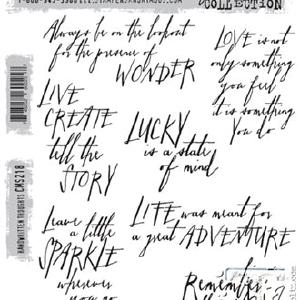 COLLECTION
Always be on the lookout
for the presence of
WONDER
LOVE is not
only something
you feel
it is something
you do
LIVE
CREATE
tell the
STORY
LUCKY
is a state
of mind
HANDWRITTEN THOUGHTS CMS218
Leave a little
SPARKLE
wherever
you go
LIFE was meant for
a great ADVENTURE
Remember